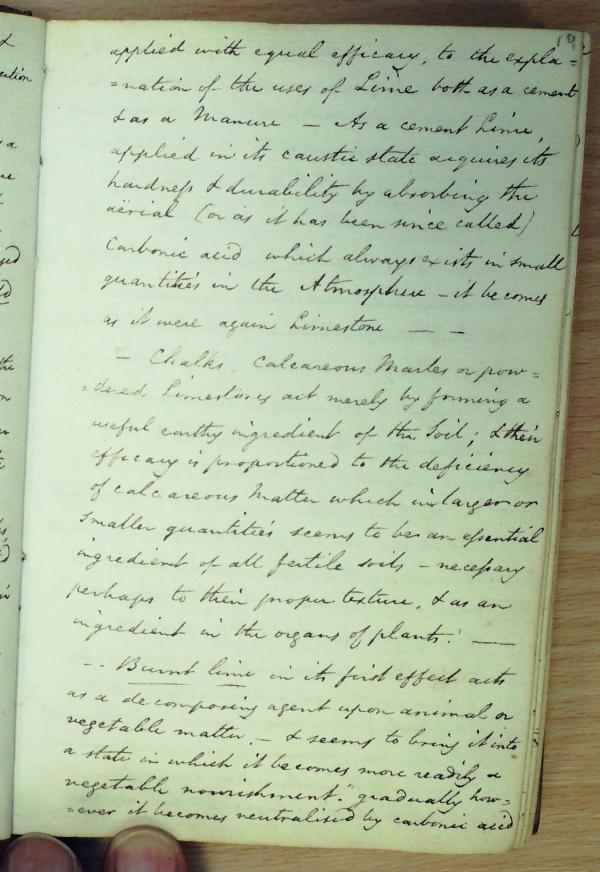 19
applied with equal efficacy, to the expla=
=nation of the uses of Lime both as a cement
& as a Manure — As a cement Lime,
applied in its caustic state acquires its
hardness & durability by absorbing the
aërial (or as it has been since called)
Carbonic acid which always exists in small
quantities in the Atmosphere – it becomes
as it were again Limestone — —
— Chalks, Calcareous Marles or pow=
=dered Limestones act merely by forming a
useful earthy ingredient of the Soil; & their
efficacy is proportioned to the deficiency
of calcareous Matter which in larger or
smaller quantities seems to be an essential
ingredient of all fertile soils – necessary
perhaps to their proper texture, & as an
ingredient in the organs of plants. —
-- Burnt lime in its first effect acts
as a decomposing agent upon animal or
vegetable matter, – & seems to bring it into
a state in which it becomes more readily a
vegetable nourishment." gradually how=
=ever it becomes neutralised by carbonic acid